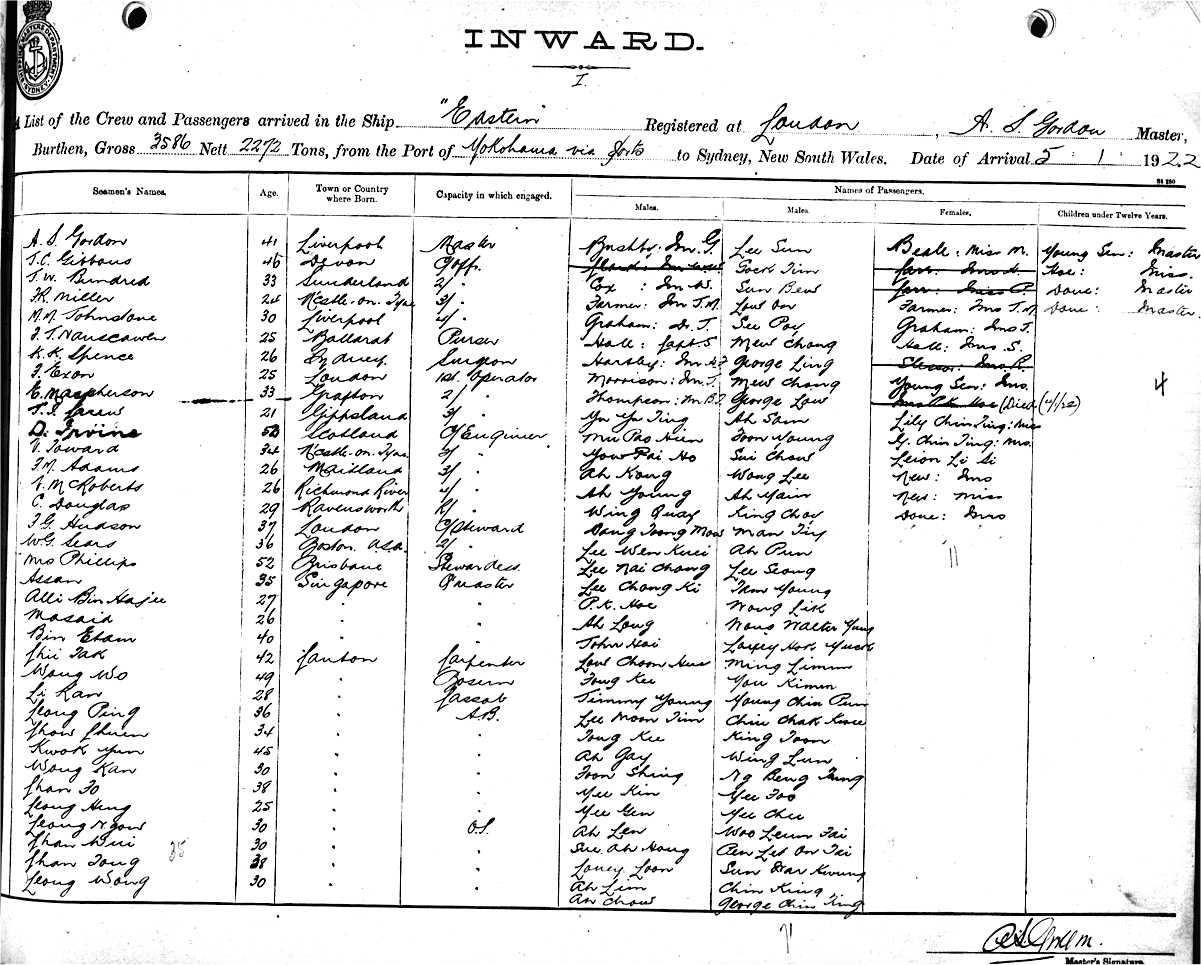 SHIPPING MASTERS DEPARTMENT. SYDNEY
INWARD.
I.
A List of the Crew and Passengers arrived in the Ship "Eastern Registered at London, A. S. Gordon Master,
Burthen, Gross 3586 Nett 2272 Tons, from the Port of Yokohama via Ports to Sydney, New South Wales. Date of Arrival 5 . 1 . 1922
Names of Passengers.
Seamen's Names. Age. Town or Country where Born. Capacity in which engaged. Males. Males. Females. Children under Twelve Years.
A. S. Gordon 41 Liverpool Master Bushby: Mr. G. Lee Sun Beale: Miss M. Young Sen: Master
T.C. Gibbons 46 Devon C/Off. Goey Tim Hoe: Miss.
T.W. Bundred 33 Sunderland 2/ . Cox : Mr W. Sun Bew Dove: Master
R. Miller 24 N'castle-on-Tyne 3/ . Farmer: Mr T.M. Low On Farmer: Mrs T.M. Dove: Master.
M.M. Johnstone 30 Liverpool 4/ . Graham: D. T. See Poy Graham: Mrs T.
25 Ballarat Purser Hall: Capt S. Mew Chong Hall: Mrs S.
K. K. Spence 26 Sydney Surgeon George Ling
F. Exon 25 London 1st. Operator Morrison: Mr. T. Mew Chong Young Sen: Mrs.
E. Macpherson 33 Grafton 2/ . Thompson: Mr B.J. George Low Mrs P.K. Hoe (Died 4/1/22) 4
21 Gippsland 3/ . Yu Yu Ting Ah Sam Lily Chin Ting: Miss
D. Irvine 52 Scotland C/Engineer Mu Pao Hien Foon Young G. Chin Ting: Mrs.
V. Toward 34 N'castle-on-Tyne 2/ . Yow Pai Ho Sui Chow Leion Li Si
F.M. Adams 26 Maitland 3/ . Ah Kong Wong Lee New: Mrs
V. McRoberts 26 Richmond River 4/ . Ah Young Ah Yain New: Miss
C. Douglas 29 Ravensworth Wing Quay King Choy Dove: Mrs
F.G. Hudson 37 London C/Steward Man Tiy
W.G. Sears 36 Boston. USA. 2/ . Lee Wen Kuei Ah Pun 11
Mrs Phillips 52 Brisbane Stewardess. Lee Nai Chong Lee Seong
Assan 35 Singapore Q'master Lee Chong Ki Tkm Young
Alli Bin Hajee 27 . . P.K. Hoe Wong Lik
Masaid 26 . . Ah Long Wong Walter Yung
Bin Etam 40 . . John Hoi
42 Canton Carpenter Low Choon Hee Ming Limm
Wong Wo 49 . Bosun Fong Kee You Kimm
Li Kan 28 . Cassab Timmy Young Young Chin Pun
Leong Ping 36 . A.B. Lee Moon Tim
34 . . Tong Kee King Toon
Kwok Yun 45 . . Ah Gay Wing Lun
Wong Kan 30 . . Foon Shing Ng Beng Tung
Chan Fo 38 . . Yee Kin Yee Foo
Leong Heng 25 . . Yee Gen Yee Chee
Leong Ngow 30 . O.S. Ah Len Woo Leun Tai
Chan Wui 35 30 . . Sue Ah Hong
Chan Tong 38 . . Louey Loon Sun Har Kwong
Leong Wong 30 . . Ah Lim Chin King
Ah Chow George Chin Ting
71
Master's Signature.